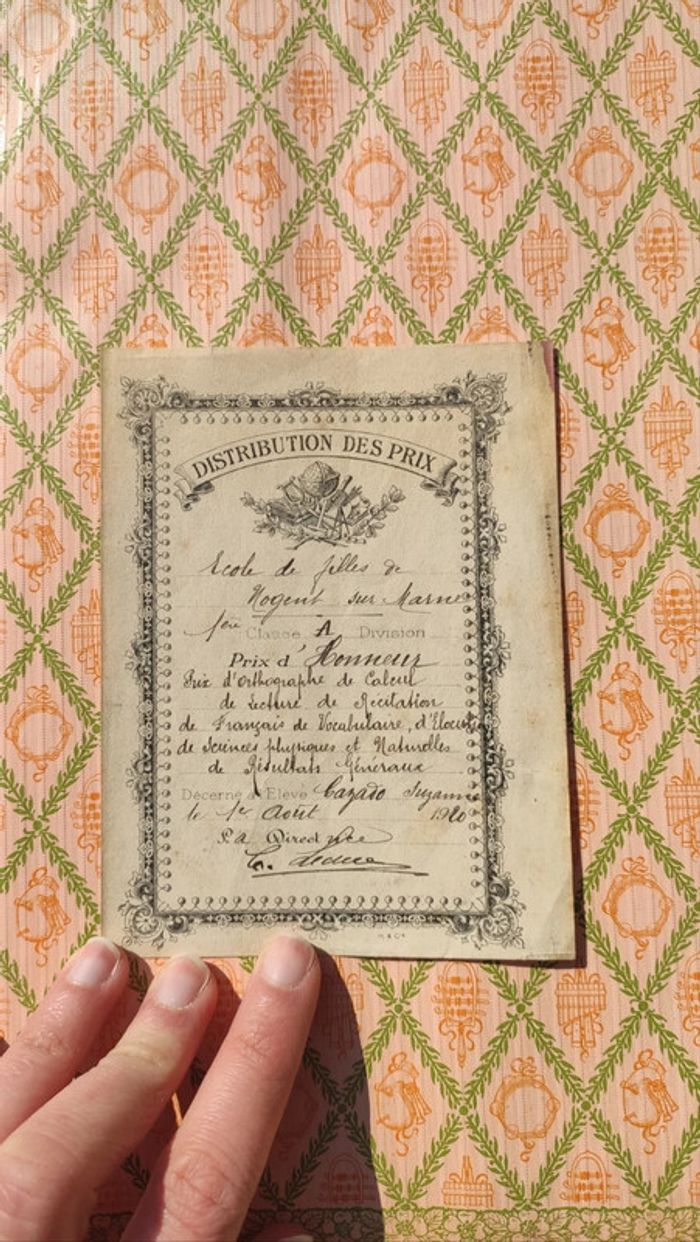 DISTRIBUTION DES PRIX
Ecole de filles de
Nogent sur Marne
1ère Classe A Division
Prix d'Honneur
Prix d'Orthographe de Calcul
de Lecture de Récitation
de Français de Vocabulaire, d'Elocution
de Sciences physiques et Naturelles
de Résultats Généraux
Décerné à Elève Cazado Suzanne
le 1er Août 1920
La Directrice